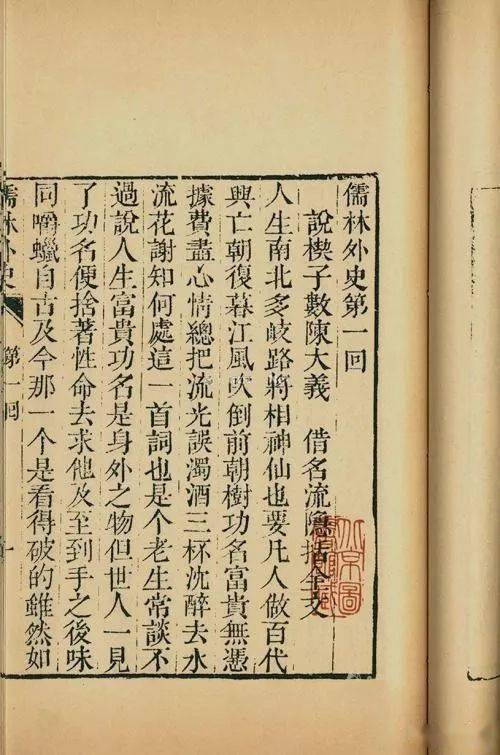 儒林外史第一回
說楔子敷陳大義 借名流隱括全文
人生南北多岐路將相神仙也要凡人做百代
興亡朝復暮江風吹倒前朝樹功名富貴無憑
據費盡心情總把流光誤濁酒三杯沈醉去水
流花謝知何處這一首詞也是个老生常談不
過說人生富貴功名是身外之物但世人一見
了功名便捨著性命去求他及至到手之後味
同嚼蠟自古及今那一个是看得破的雖然如
儒林外史 第一回 一
北京圖